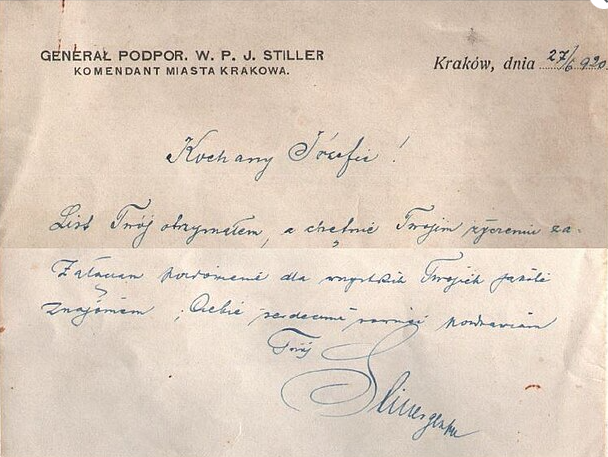 GENERAŁ PODPOR. W. P. J. STILLER
KOMENDANT MIASTA KRAKOWA.
Kraków, dnia 27/6 920
Kochany Józefie!
List Twój otrzymałem, a chętnie Twojim życzeniu za-
Załączam dla wszystkich Twojich
znajomem, Ciebie serdecznie pozdrawiam
Twój
Stiller